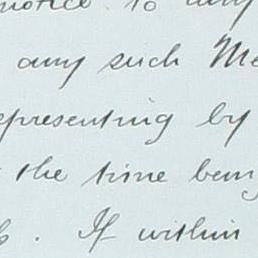 notice to any
any such Me
epresenting by
the time bein
. If within